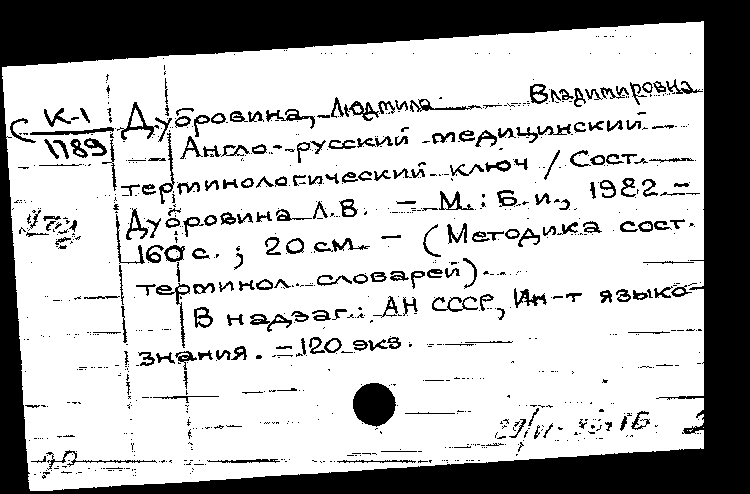 К-1
1789
Дубровина, Людмила Владимировна
Англо-русский медицинский
терминологический ключ / Сост.
Дубровина Л.В. – М.: Б.и., 1982. –
160 с. ; 20 см. – (Методика сост.
терминол. словарей).
В надзаг.: АН СССР, Ин-т языко-
знания. – 120 экз.
20